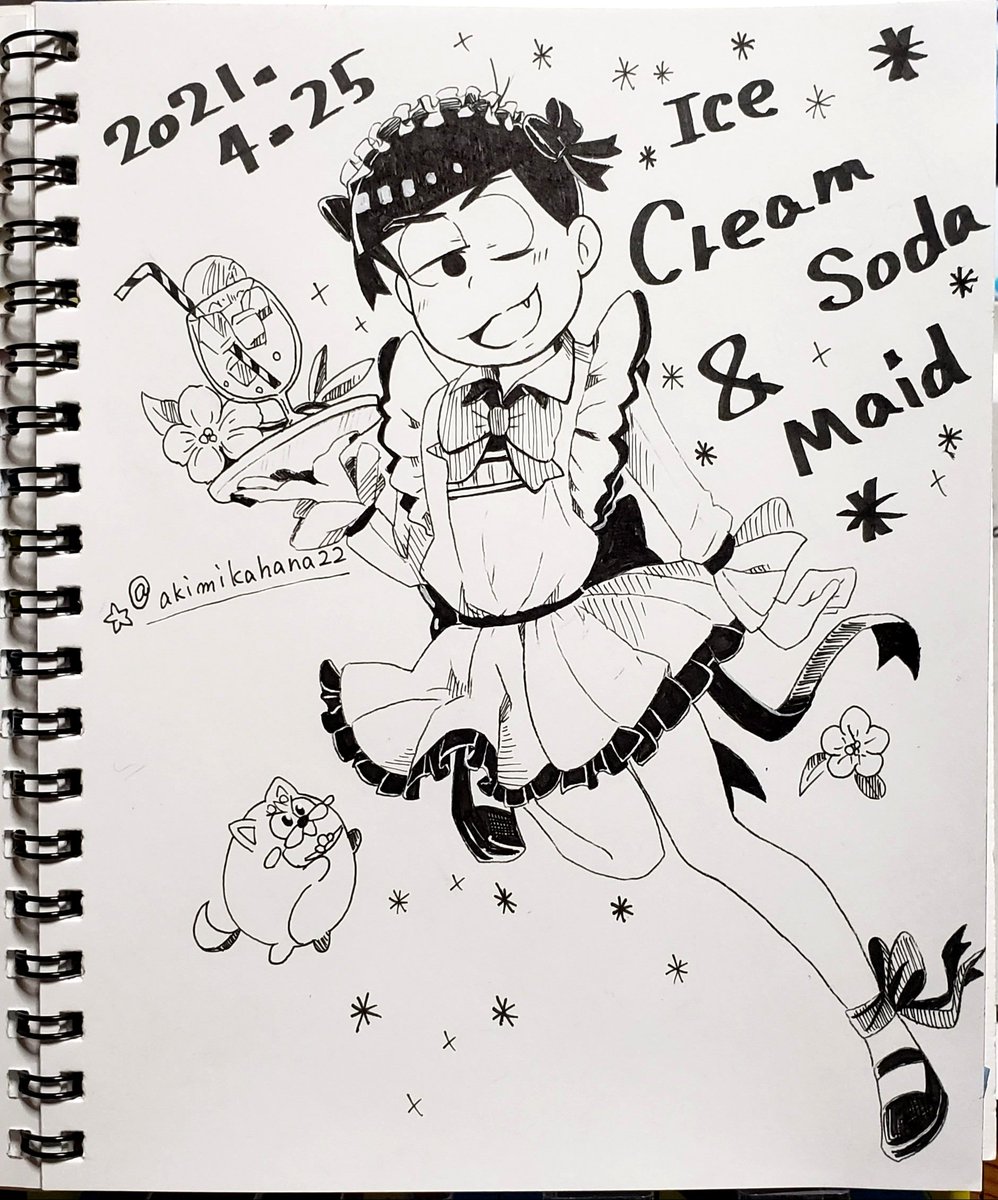 2021.
4.25
Ice
Cream
Soda
&
Maid
@akimikahana22